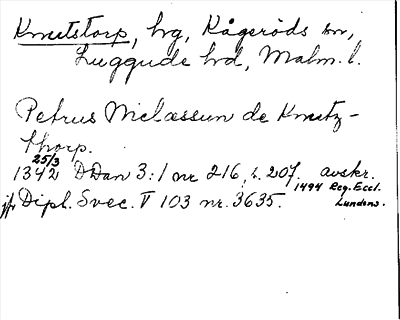 Knutstorp, hg, Kågeröds sn,
Luggude hd, Malm. l.
Petrus Niclæssun de Knutz-
thorp.
25/3
1342 DDan 3:1 nr 216, s. 207. avskr.
1494 Reg. Eccl.
jfr Dipl. Svec. V 103 nr. 3635. Lundens.